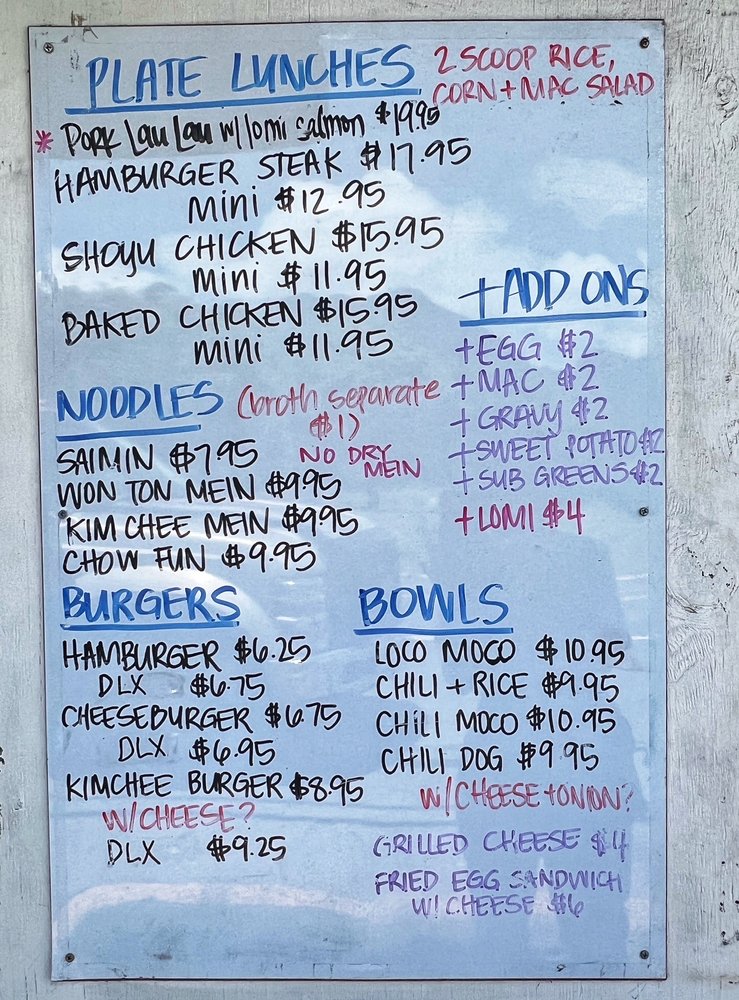 PLATE LUNCHES
2 SCOOP RICE,
CORN + MAC SALAD
* PORK Lau Lau w/ lomi salmon $19.95
HAMBURGER STEAK $17.95
mini $12.95
SHOYU CHICKEN $15.95
mini $11.95
BAKED CHICKEN $15.95
mini $11.95
+ADD ONS
+EGG $2
+MAC $2
+GRAVY $2
+SWEET POTATO $2
+SUB GREENS $2
+LOMI $4
NOODLES (broth separate
$1)
NO DRY
MEIN
SAIMIN $7.95
WON TON MEIN $9.95
KIM CHEE MEIN $9.95
CHOW FUN $9.95
BURGERS
HAMBURGER $6.25
DLX $6.75
CHEESEBURGER $6.75
DLX $6.95
KIMCHEE BURGER $8.95
W/CHEESE?
DLX $9.25
BOWLS
LOCO MOCO $10.95
CHILI + RICE $9.95
CHILI MOCO $10.95
CHILI DOG $9.95
W/CHEESE + ONION?
GRILLED CHEESE $4
FRIED EGG SANDWICH
W/ CHEESE $6